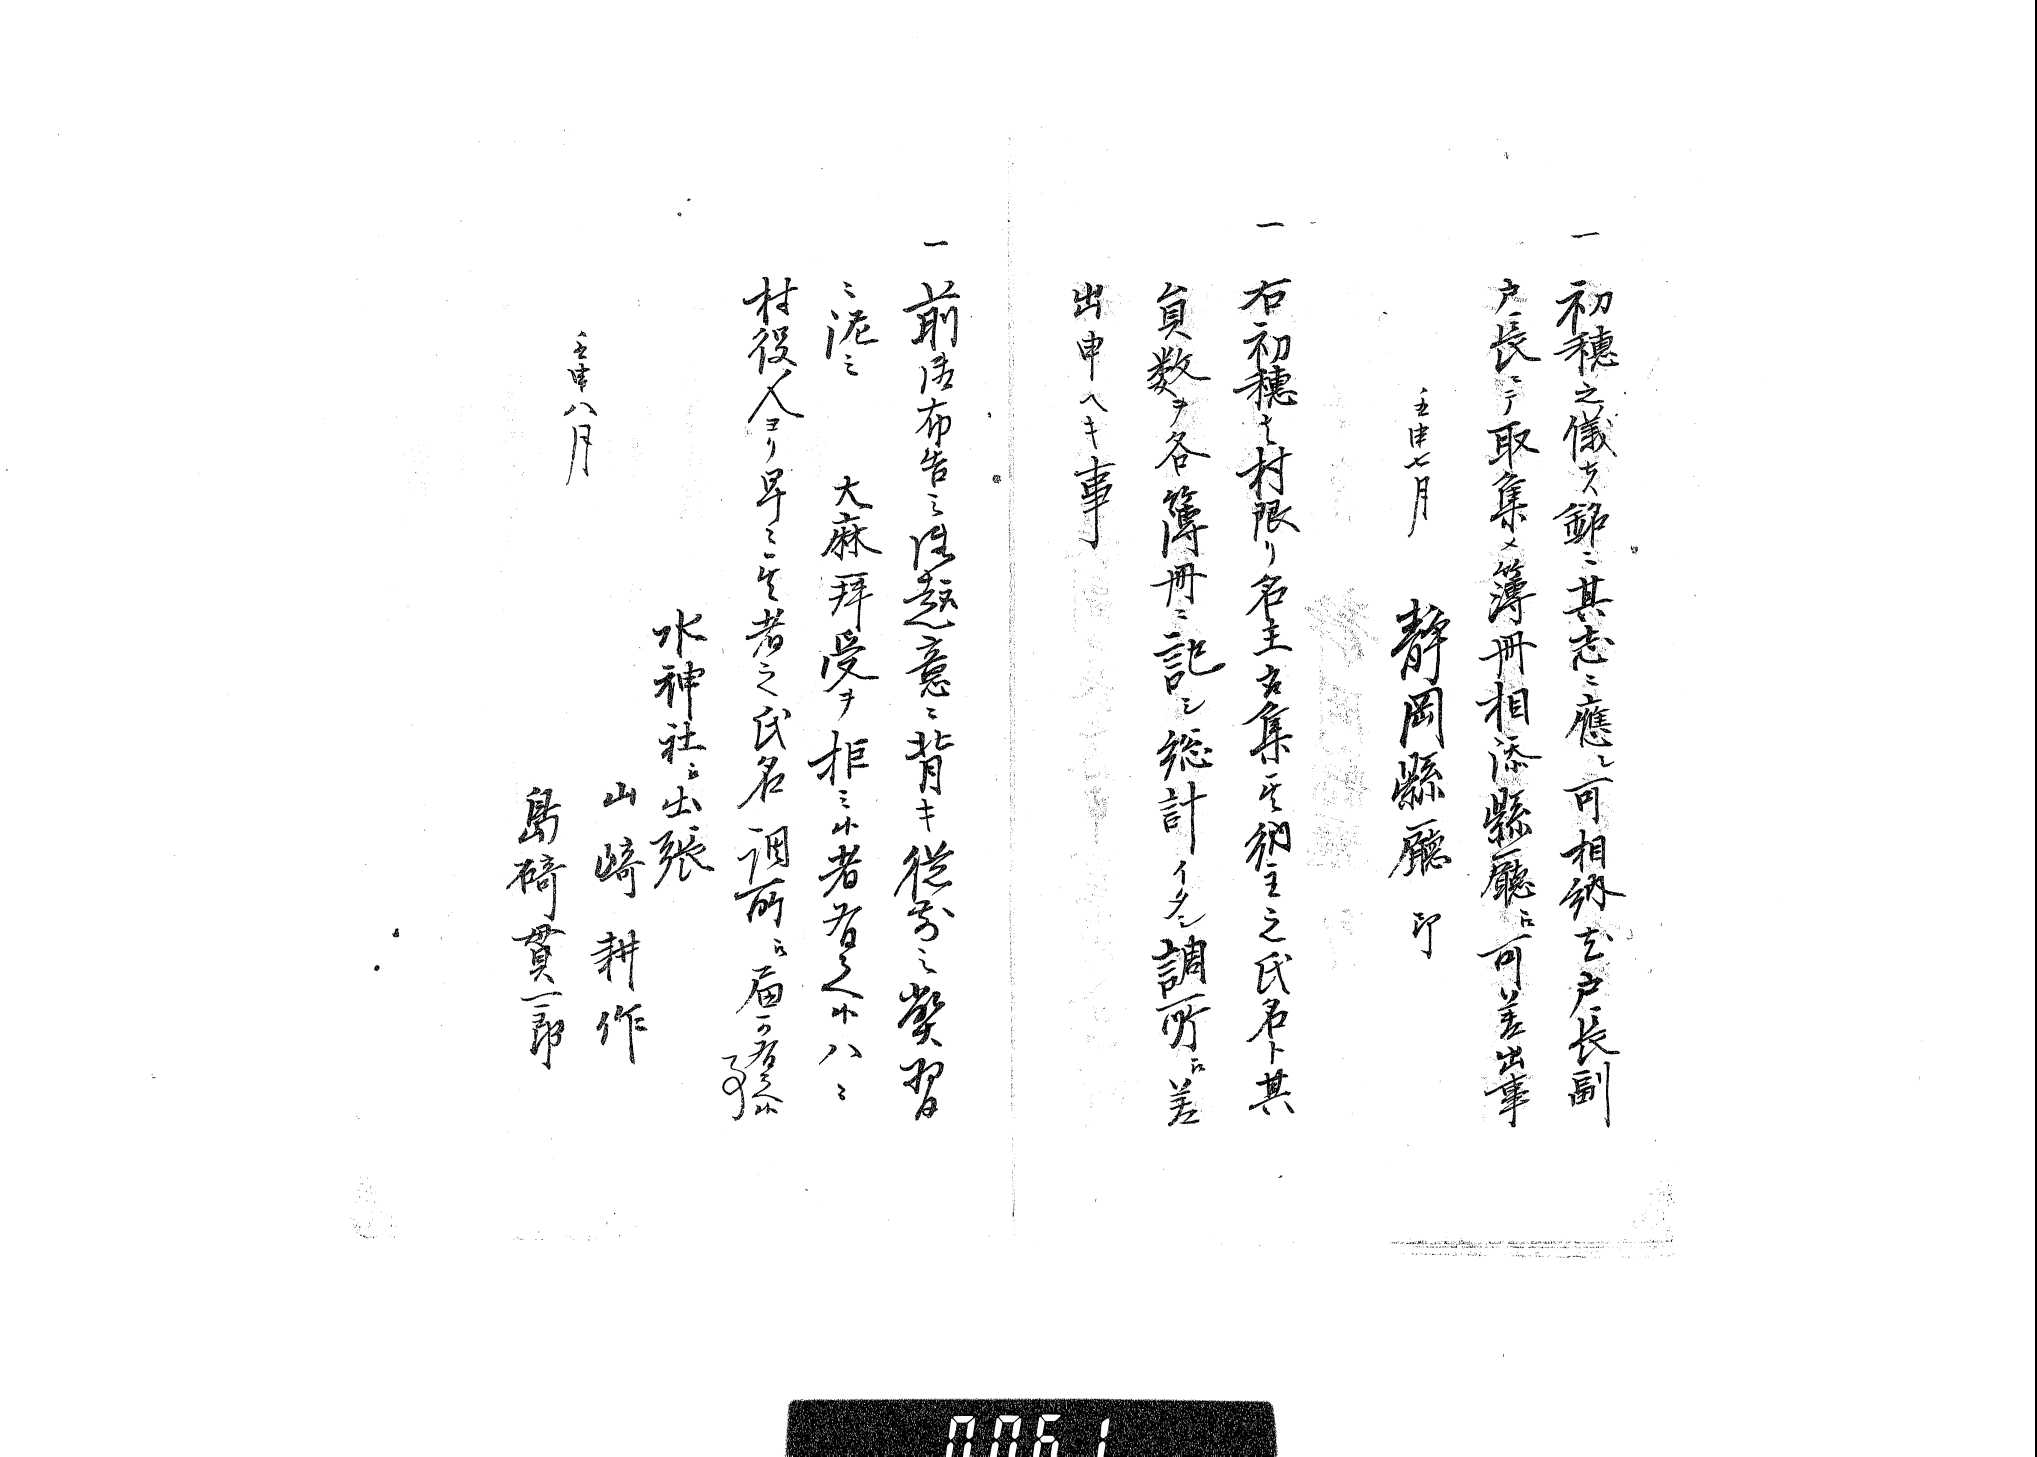 一 初穂之儀ハ銘々其志ニ應シ可相納尤戸長副
戸長ニテ取集メ簿冊相添縣廳江可差出事
壬申七月 静岡縣廳 印
一 右初穂ハ村限リ名主方集其納主之氏名ト其
員数ヲ各簿冊ニ記シ総計イタシ調所江差
出申ヘキ事
一 前 布告之御趣意ニ背キ従前之弊習
ニ泥ミ 大麻拝受ヲ拒ミ候者有之候ハヽ
村役人ヨリ早々其者之氏名調所江届可有之候事
水神社江出張
山崎耕作
壬申八月
島碕貫一郎
0061